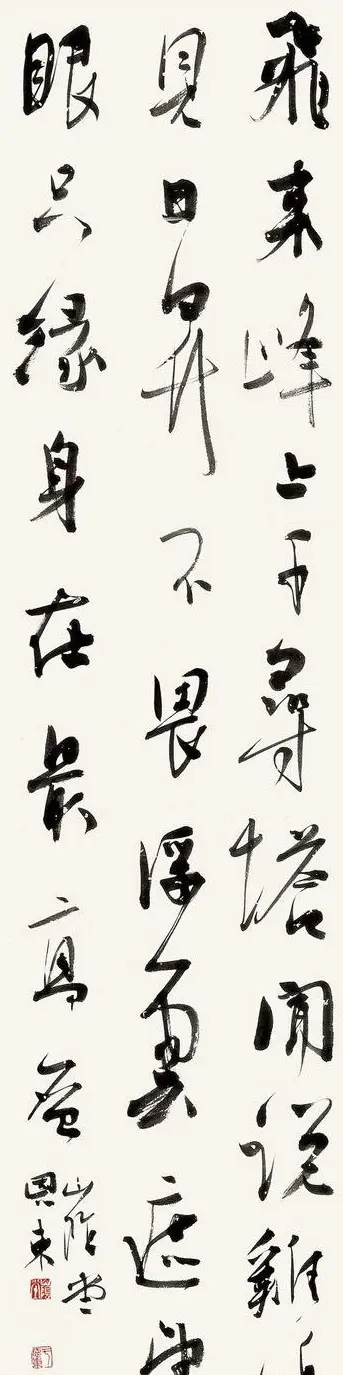 飛來峰上千尋塔聞說雞
見日昇不畏浮雲遮
眼只緣身在最高層
山陰